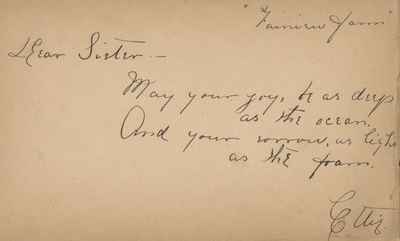 "Fairview Farm"
Dear Sister —
May your joys, be as deep
as the ocean.
And your sorrow, as light
as the foam.